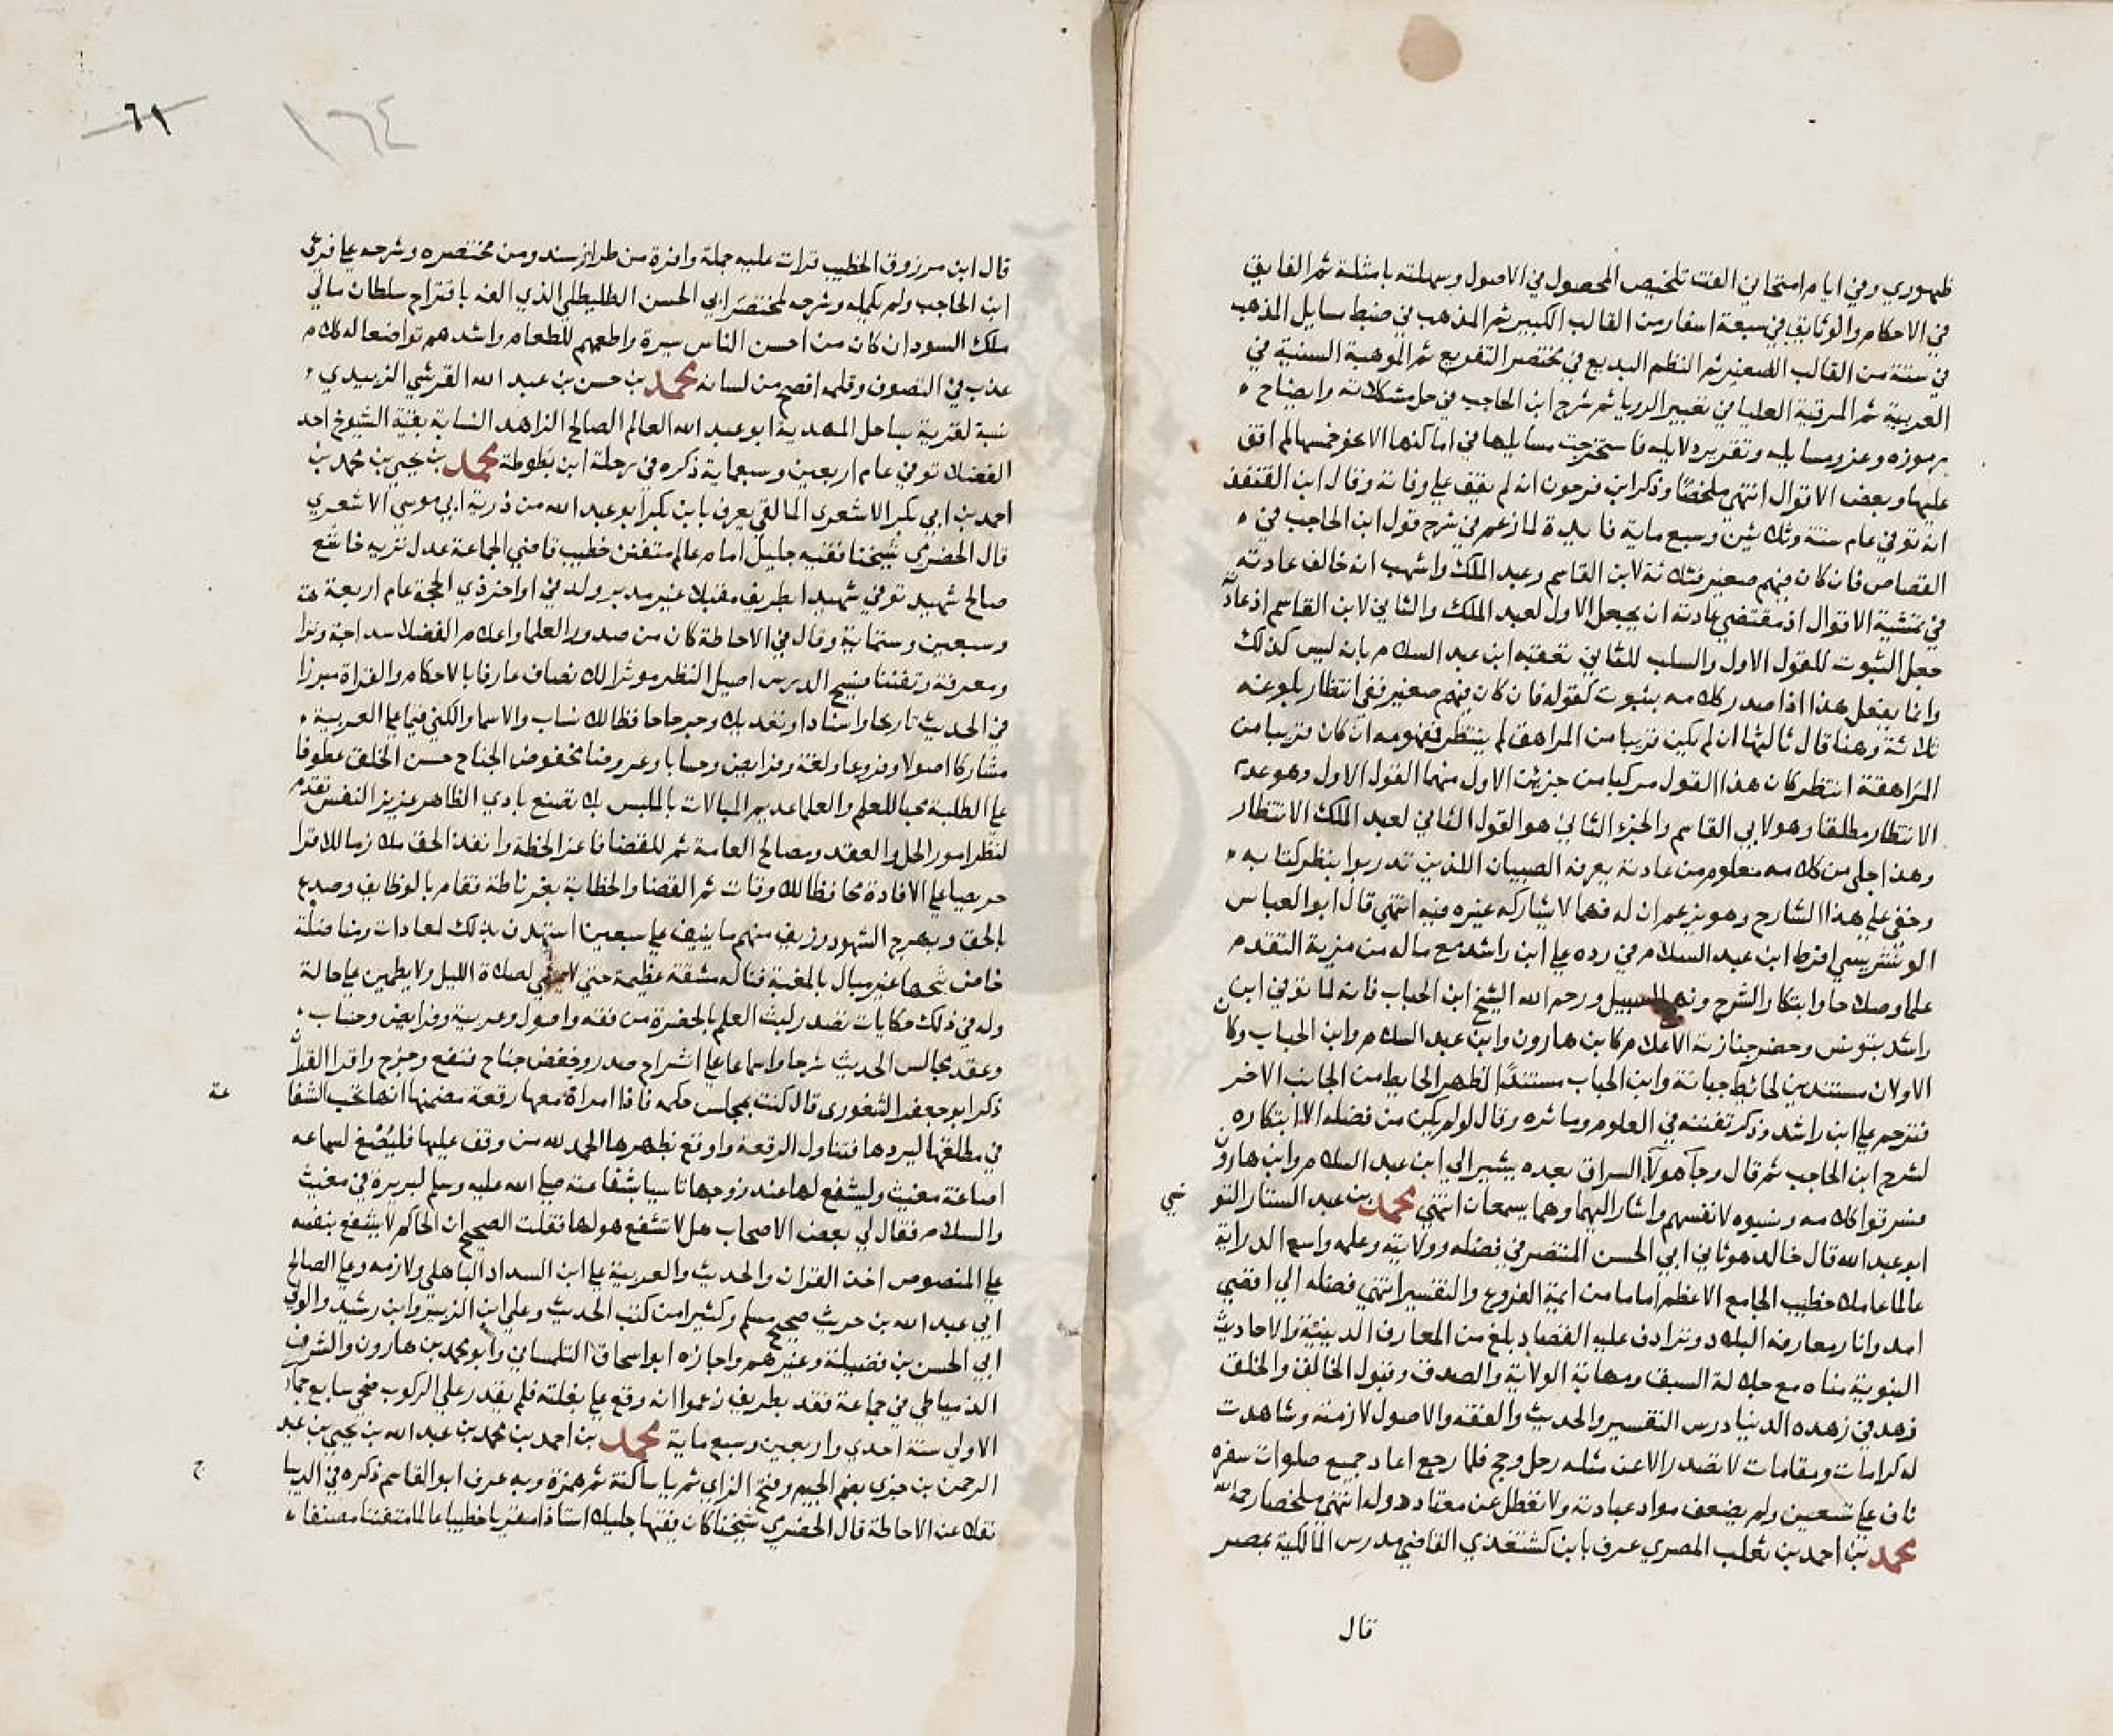 ظهوري وفي ايام امتحاني الفت تلخيص المحصول في الاصول وسهلته بامثلة ثم الفايق
في الاحكام والوثايق في سبعة اسفار من القالب الكبير ثم المذهب في ضبط مسايل المذهب
في ستة من القالب الصغير ثم النظم البديع في مختصر التفريع ثم الموهبة السنية في
العربية ثم المرتبة العليا في تعبير الرويا ثم شرح ابن الحاجب في حل مشكلاته وايضاح
رموزه وعزو مسايله وتقرير دلايله فاستخرجت مسايلها في اماكنها الا نحو خمسها لم اقف
عليها وبعض الاقوال انتهي ملخصا وذكر ابن فرحون انه لم يقف علي وفاته وقال ابن القنفذ
انه توفي عام ستة وثلاثين وسبع ماية فايدة لما زعم في شرح قول ابن الحاجب في
القصاص فان كان فيهم صغير فثلاثة لابن القاسم وعبد الملك واشهب انه خالف عادته
في تمشية الاقوال اذ مقتضي عادته ان يجعل الاول لعبد الملك والثاني لابن القاسم اذ عادته
جعل الثبوت للقول الاول والسلب للثاني تعقبه ابن عبد السلام بانه ليس كذلك
وانما يفعل هذا اذا صدر كلامه بثبوت كقوله فان كان فيهم صغير ففي انتظار بلوغه
ثلاثة وهنا قال ثالثها ان لم يكن قريبا من المراهق لم ينتظر فمفهومه ان كان قريبا من
المراهقة انتظر كان هذا القول مركبا من جزئين الاول منهما القول الاول وهو عدم
الانتظار مطلقا وهو لابي القاسم والجزء الثاني هو القول الثاني لعبد الملك الانتظار
وهذا جلي من كلامه معلوم من عادته يعرفه الصبيان اللذين تدربوا بنظر كتابه
وخفي علي هذا الشارح وهو يزعم ان له فهما لا يشاركه غيره فيه انتهي قال ابو العباس
الونشريسي افرط ابن عبد السلام في رده علي ابن راشد مع ما له من مزية التقدم
علما وصلاحا وابتكار الشرح ونهج السبيل ورحم الله الشيخ ابن الحباب فانه لما توفي ابن
راشد بتونس وحضر جنازته الاعلام كابن هارون وابن عبد السلام وابن الحباب وكان
الاولان مستندين لحائط جبانة وابن الحباب مستندا لظهر الحايط من الجانب الاخر
فترحم علي ابن راشد وذكر تفننه في العلوم ومآثره وقال لو لم يكن من فضله الا ابتكاره
لشرح ابن الحاجب ثم قال وجآ هولآ السراق بعده يشير الي ابن عبد السلام وابن هارون
فسرقوا كلامه ونسبوه لانفسهم واشار اليهما وهما يسمعان انتهي محمد بن عبد الستار التو
نسي
ابو عبد الله قال خالد هو ثاني ابي الحسن المنتصر في فضله وولايته وعلمه واسع الدراية
عالما عاملا خطيب الجامع الاعظم امام من ايمة الفروع والتفسير انتهي فضله الي اقصي
امد وانار معارفه البلاد وترادف عليه القصاد بلغ من المعارف الدينية والاحاديث
النبوية مناه مع جلالة السبق ومهابة الولاية والصدق وقبول الخالق والخلق
زهد في زهده الدنيا درس التفسير والحديث والفقه والاصول لازمته وشاهدت
له كرامات ومقامات لا تصدر الا عن مثله رحل وحج فلما رجع اعاد جميع صلوات سفره
ناف علي تسعين ولم يضعف مواد عبادته ولا تعطل عن معتاده وله انتهي ملخصا رحمه الله
محمد بن احمد بن ثعلب المصري عرف بابن كشتغدي القاضي مدرس المالكية بمصر
قال
٦١
١٦٤
قال ابن مرزوق الخطيب قرات عليه جملة وافرة من طراز سند ومن مختصره وشرحه علي فرعي
ابن الحاجب ولم يكمله وشرحه لمختصر ابي الحسن الطليطلي الذي الفه باقتراح سلطان مالي
ملك السودان كان من احسن الناس سيرة واطعمهم للطعام واشدهم تواضعا له كلام
عذب في التصوف وقلمه افصح من لسانه محمد بن حسن بن عبد الله القرشي الزبيدي
نسبة لقرية بساحل المهدية ابو عبد الله العالم الصالح الزاهد النسابة بقية الشيوخ احد
الفضلا توفي عام اربعين وسبعماية ذكره في رحلة ابن بطوطة محمد بن يحيي بن محمد بن
احمد بن ابي بكر الاشعري المالقي يعرف بابن بكر ابو عبد الله من ذرية ابي موسي الاشعري
قال الحضري شيخنا فقيه جليل امام عالم متفنن خطيب قاضي الجماعة عدل نزيه خاشع
صالح شهيد توفي شهيدا بطريف مقبلا غير مدبر ولد في اواخر ذي الحجة عام اربعة
وسبعين وستماية وقال في الاحاطة كان من صدور العلما واعلام الفضلا سذاجة ونزا
عة
ومعرفة وتفننا فسيح الدرس اصيل النظر موثرا للانصاف عارفا بالاحكام والقراة مبرزا
في الحديث تاريخا واسنادا وتعديلا وجرحا حافظا للانساب والاسما والكني قيما علي العربية
مشاركا اصولا وفروعا ولغة وفرايض وحسابا وعروضا مخفوض الجناح حسن الخلق عطوفا
علي الطلبة محبا للعلم والعلما عديم المبالات بالملبس بلا تصنع بادي الظاهر عزيز النفس تقدم
لنظر امور الحل والعقد ومصالح العامة ثم للقضا فاعز الخطة وانفذ الحق ملازما للاقرا
حريصا علي الافادة محافظا للاوقات ثم القضا والخطابة بغرناطة فقام بالوظايف وصدع
بالحق وبهرج الشهود وزيف منهم ما ينيف علي سبعين استهدف بذلك لمعادات ومناضلة
خاض ثبجها غير مبال بالمغبة فناله مشقة عظيمة حتي لا يمشي لصلاة الليل ولا يطمين علي حالة
وله في ذلك حكايات تصدر لبث العلم بالحضرة من فقه واصول وعربية وفرايض وحساب
وعقد مجالس الحديث شرحا واسماعا علي انشراح صدر وخفض جناح فنفع وخرج واقرا القران
ذكر ابو جعفر الشقوري قال كنت بمجلس حكمه فاذا امراة معها رقعة مضمنها انها تحب الشفا
عة
في مطلقها ليردها فتناول الرقعة واوقع بظهرها الحمد لله من وقف عليها فليصغ لسماعه
اصاغة مغيث وليشفع لها عند زوجها تاسيا بشفاعته صلي الله عليه وسلم لبريرة في مغيث
والسلام فقال لي بعض الاصحاب هل لا تشفع هو لها فقلت الصحيح ان الحاكم لا يشفع بنفسه
علي المنصوص اخذ القران والحديث والعربية علي ابن السداد الباهلي ولازمه وعلي الصالح
ابي عبد الله بن حريث صحيح مسلم وكثيرا من كتب الحديث وعلي ابن الزبير وابن رشيد والولي
ابي الحسن بن فضيلة وغيرهم واجازه ابو اسحاق التلمساني وابو محمد بن هارون والشرف
الدمياطي في جماعة فقد بطريف زعموا انه وقع علي بغلته فلم يقدر علي الركوب ضحي سابع جما
الاولي سنة احدي واربعين وسبع ماية محمد بن احمد بن محمد بن عبد الله بن يحيي بن عبد
الرحمن بن جزي بضم الجيم وفتح الزاي ثم يا ساكنة ثم همزة وبه عرف ابو القاسم ذكره في الديبا
ج
نقلا عن الاحاطة قال الحضري شيخنا كان فقيها جليلا استاذا مقريا خطيبا عالما متفننا مصنفا